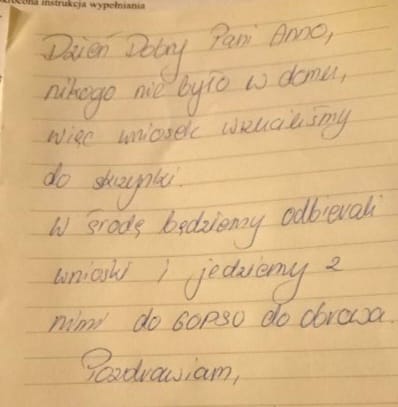 skrócona instrukcja wypełniania
Dzień Dobry Pani Anno,
nikogo nie było w domu,
więc wniosek wrzuciliśmy
do skrzynki.
W środę będziemy odbierali
wnioski i jedziemy z
nimi do GOPSU do Obrowa.
Pozdrawiam,